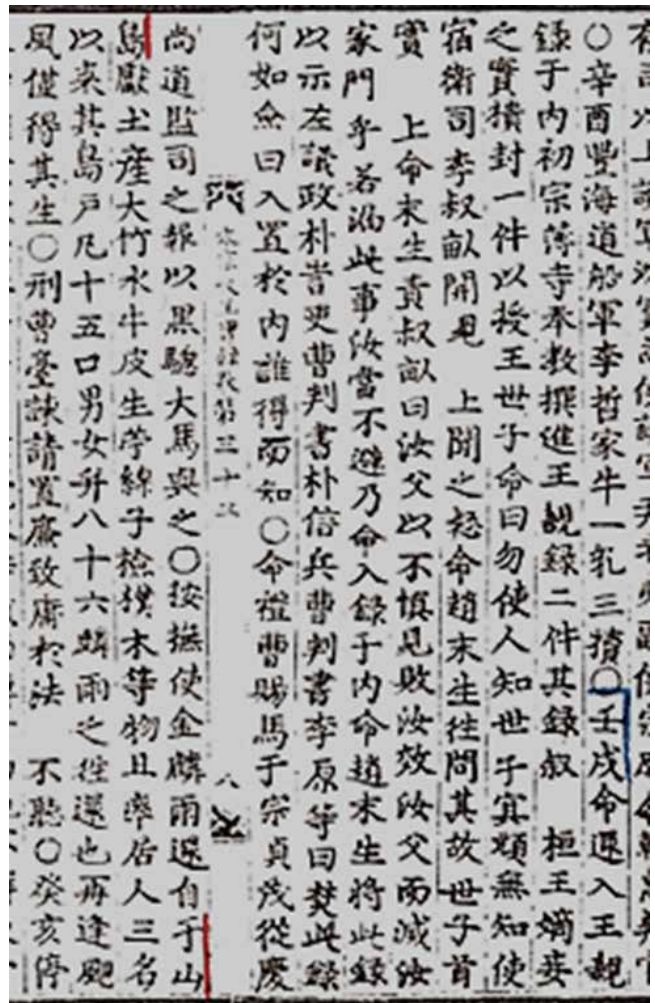 ○辛酉豐海道船軍李哲家牛一乳三犢○壬戌命還入王親
錄于內初宗簿寺奉敎撰進王親錄二件其錄叙 桓王嫡妾
之實封一件以授王世子命曰勿使人知世子無知使
宿衛司李叔畝開見 上聞之命趙末生往問其故世子首
實 上命末生責叔畝曰汝父以不愼見敗汝效汝父而滅汝
家門乎若漏此事汝當不避乃命入錄于內命趙末生將此錄
以示左議政朴訔吏曹判書朴信兵曹判書李原等曰焚此錄
何如僉曰入置於內誰得而知○命禮曹賜馬于宗貞茂從慶
八
尙道監司之報以黑驄大馬與之○按撫使金麟雨還自于山
島獻土產大竹水牛皮生苧綿子檢樸木等物且率居人三名
以來其島戶凡十五口男女幷八十六麟雨之往還也再逢颶
風僅得其生○刑曹臺諫請置廉致庸於法 不聽○癸亥停